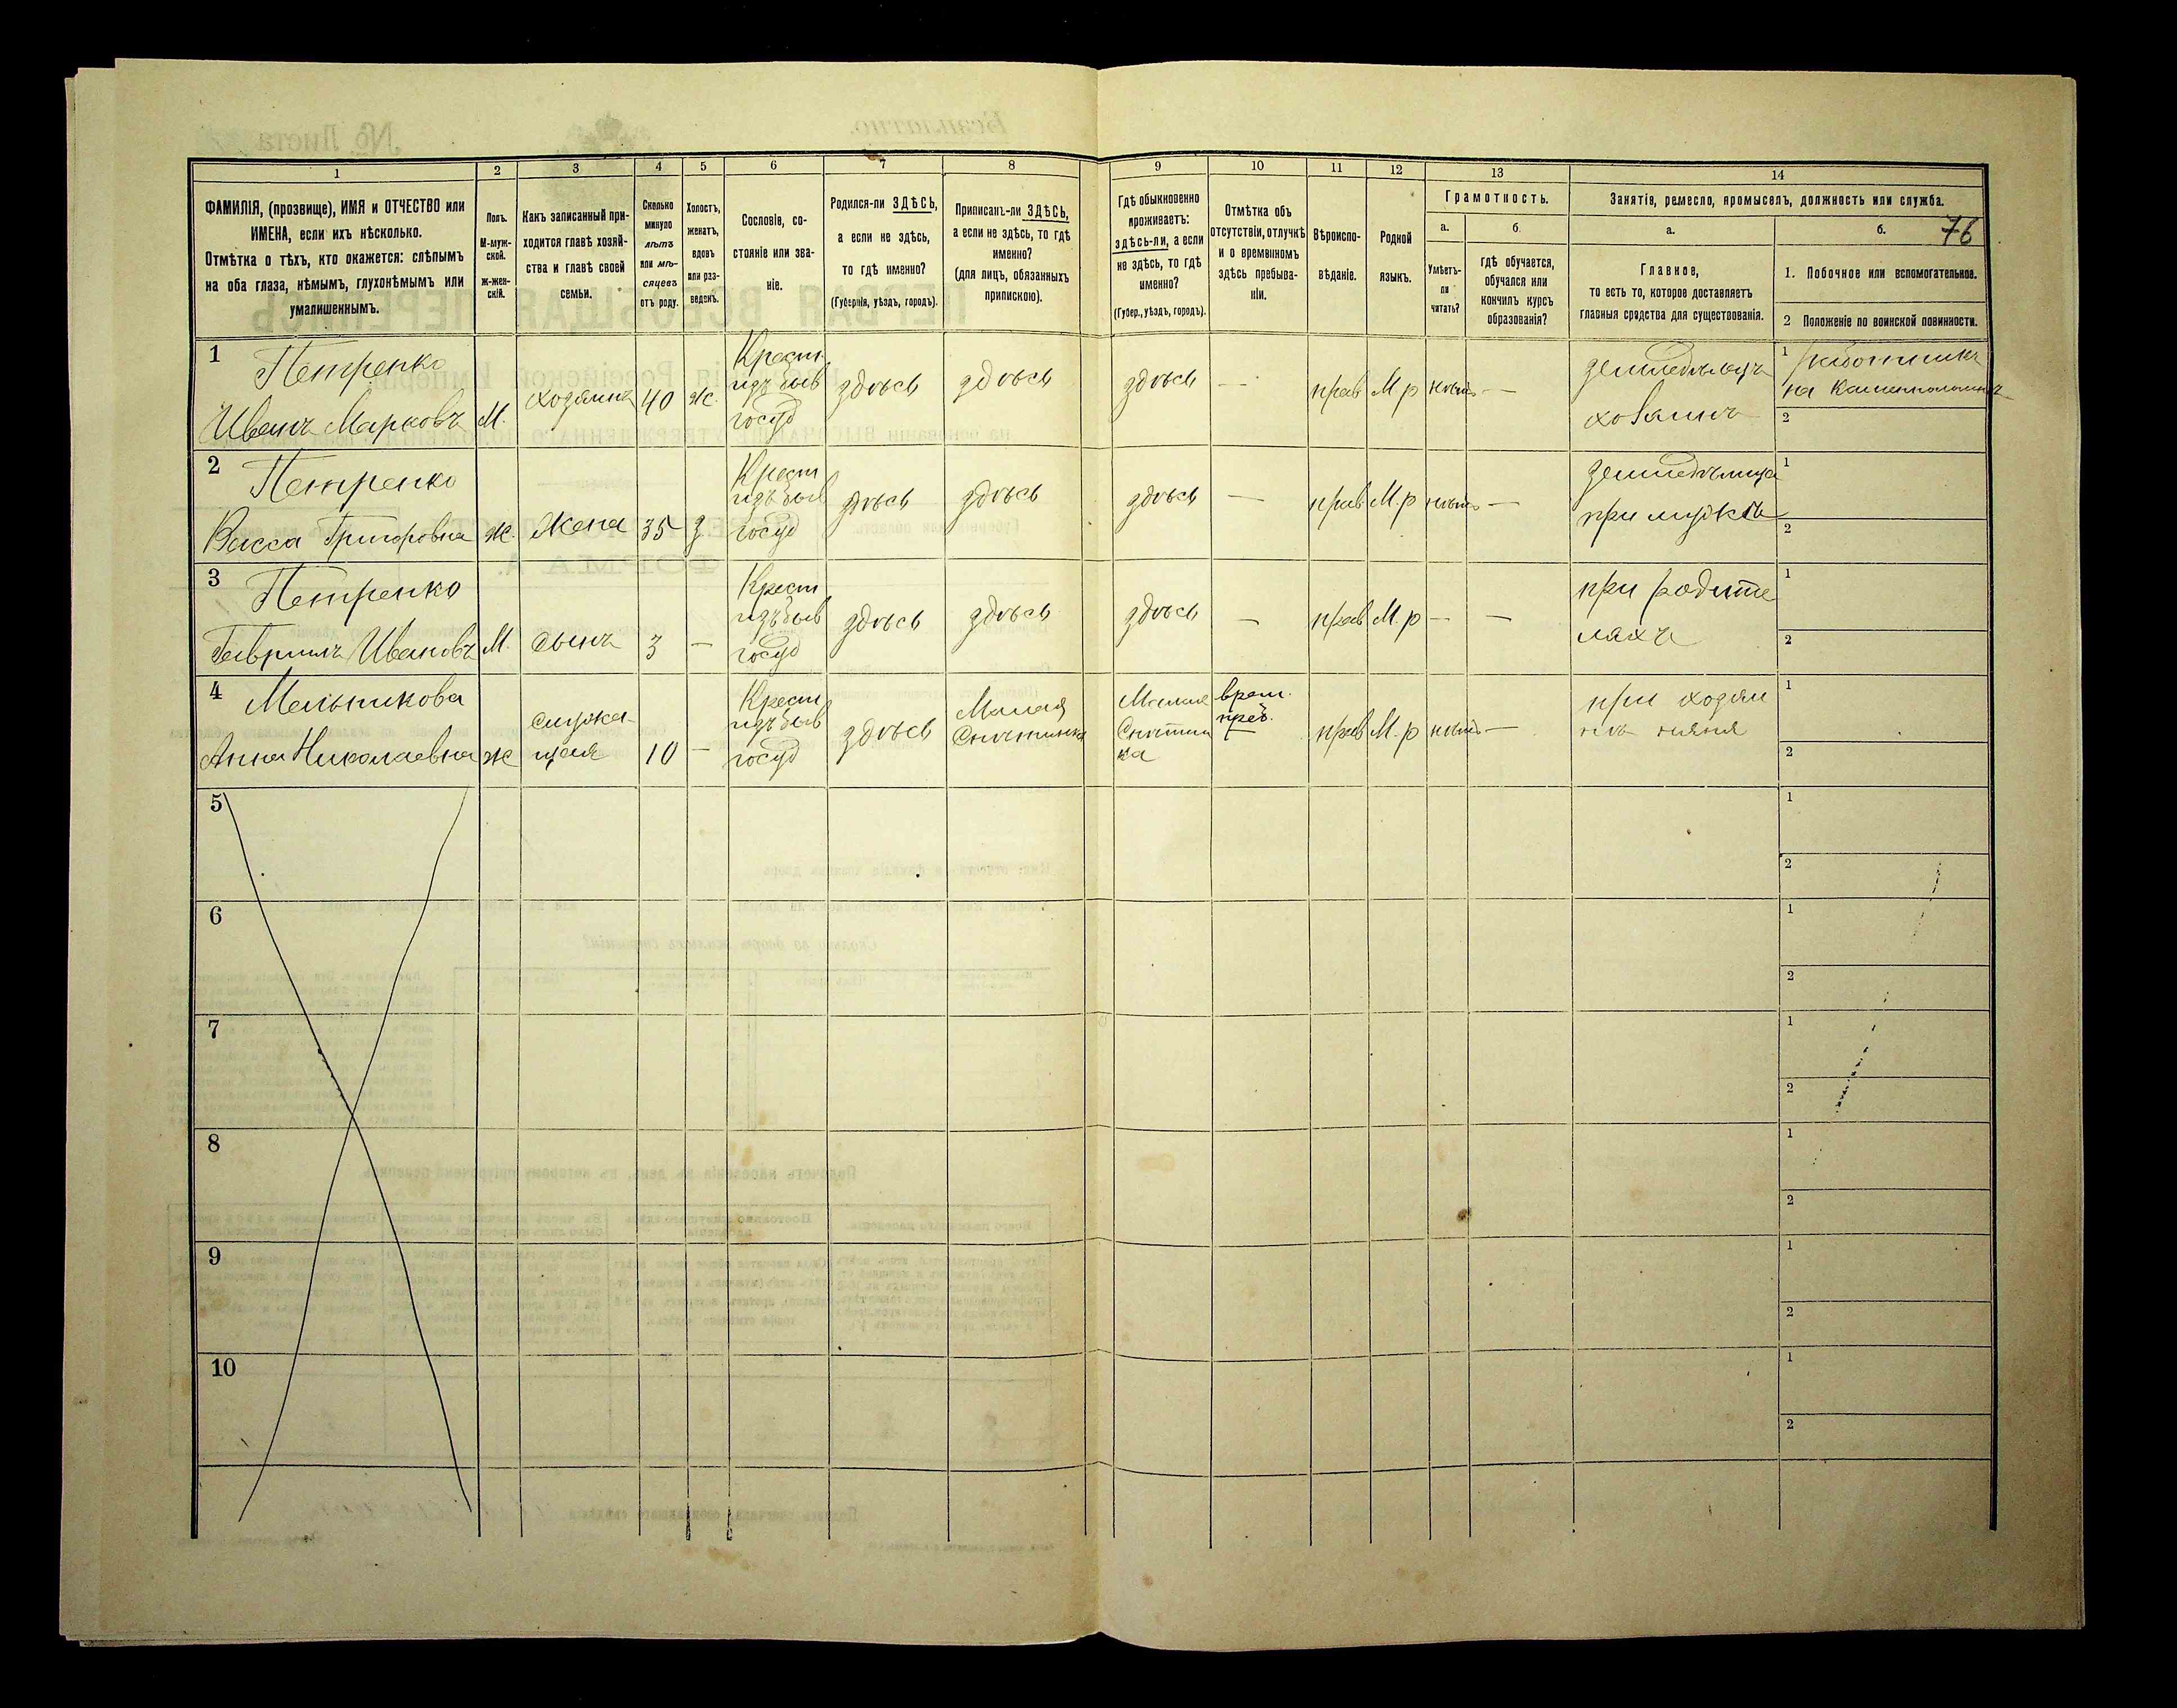 1
2
3
4
5
6
7
8
9
10
11
12
13
14
ФАМИЛІЯ, (прозвище), ИМЯ и ОТЧЕСТВО или
ИМЕНА, если ихъ нѣсколько.
Отмѣтка о тѣхъ, кто окажется: слѣпымъ
на оба глаза, нѣмымъ, глухонѣмымъ или
умалишеннымъ.
Полъ.
М-муж-
ской.
ж-жен-
скій.
Какъ записанный при-
ходится главѣ хозяй-
ства и главѣ своей
семьи.
Сколько
минуло
лѣтъ
или мѣ-
сяцевъ
отъ роду.
Холостъ,
женатъ,
вдовъ
или раз-
веденъ.
Сословіе, со-
стояніе или зва-
ніе.
Родился-ли ЗДѢСЬ,
а если не здѣсь,
то гдѣ именно?
(Губернія, уѣздъ, городъ).
Приписанъ-ли ЗДѢСЬ,
а если не здѣсь, то гдѣ
именно?
(для лицъ, обязанныхъ
припискою).
Гдѣ обыкновенно
проживаетъ:
здѣсь-ли, а если
не здѣсь, то гдѣ
именно?
(Губер., уѣздъ, городъ).
Отмѣтка объ
отсутствіи, отлучкѣ
и о временномъ
здѣсь пребыва-
ніи.
Вѣроиспо-
вѣданіе.
Родной
языкъ.
Грамотность.
а.
б.
Умѣетъ-
ли
читать?
гдѣ обучается,
обучался или
кончилъ курсъ
образованія?
Занятіе, ремесло, промыселъ, должность или служба.
а.
б.
76
Главное,
то есть то, которое доставляетъ
главныя средства для существованія.
1. Побочное или вспомогательное.
2 Положеніе по воинской повинности.
1
Петренко
Иванъ Марковъ
М.
хозяинъ
40
ж.
Крест.
изъ быв
госуд
здѣсь
здѣсь
здѣсь
—
прав
М р
нѣтъ
—
земледѣлецъ
хозаинъ
1
работникъ
на
2
2
Петренко
Васса Григоровна
ж.
Жена
35
з
Крест
изъ быв
госуд
здѣсь
здѣсь
здѣсь
—
прав
М. р
нѣтъ
—
земледѣлица
при мужѣ
1
2
3
Петренко
Гаврилъ Ивановъ
М.
сынъ
3
—
Крест
изъ быв
госуд
здѣсь
здѣсь
здѣсь
—
прав
М. р
—
—
при родите
ляхъ
1
2
4
Мельникова
Анна Николаевна
ж
служа-
щая
10
—
Крест
изъ быв
госуд
здѣсь
Малая
Снѣтинка
Малая
Снѣтин
ка
врем.
преб.
прав
М. р
нѣтъ
—
при хозяи
нѣ няня
1
2
5
1
2
6
1
2
7
1
2
8
1
2
9
1
2
10
1
2